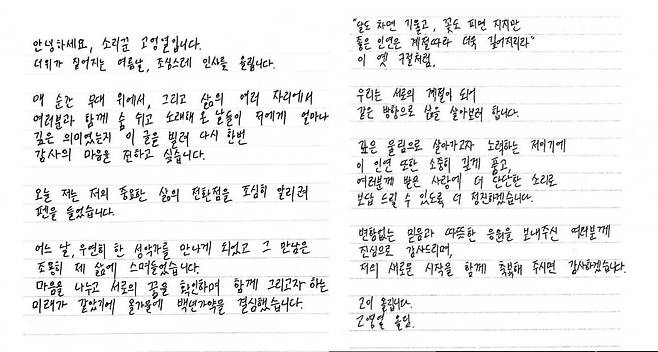 안녕하세요, 소리꾼 고영열입니다.
더위가 짙어지는 여름날, 조심스레 인사를 올립니다.
매 순간 무대 위에서, 그리고 삶의 여러 자리에서
여러분과 함께 숨 쉬고 노래해 온 날들이 저에게 얼마나
깊은 의미였는지 이 글을 빌려 다시 한번
감사의 마음을 전하고 싶습니다.
오늘 저는 저의 중요한 삶의 전환점을 조심히 알리려
펜을 들었습니다.
어느 날, 우연히 한 성악가를 만나게 되었고 그 만남은
조용히 제 삶에 스며들었습니다.
마음을 나누고 서로의 꿈을 확인하며 함께 그리고자 하는
미래가 같았기에 올가을에 백년가약을 결심했습니다.
"달도 차면 기울고, 꽃도 피면 지지만
좋은 인연은 계절따라 더욱 깊어지리라"
이 옛 구절처럼,
우리는 서로의 계절이 되어
같은 방향으로 삶을 살아보려 합니다.
깊은 울림으로 살아가고자 노력하는 저이기에
이 인연 또한 소중히 깊게 품고,
여러분께 받은 사랑에 더 단단한 소리로
보답 드릴 수 있도록 더 정진하겠습니다.
변함없는 믿음과 따뜻한 응원을 보내주신 여러분께
진심으로 감사드리며,
저의 새로운 시작을 함께 축복해 주시면 감사하겠습니다.
고이 올립니다.
고영열 올림.